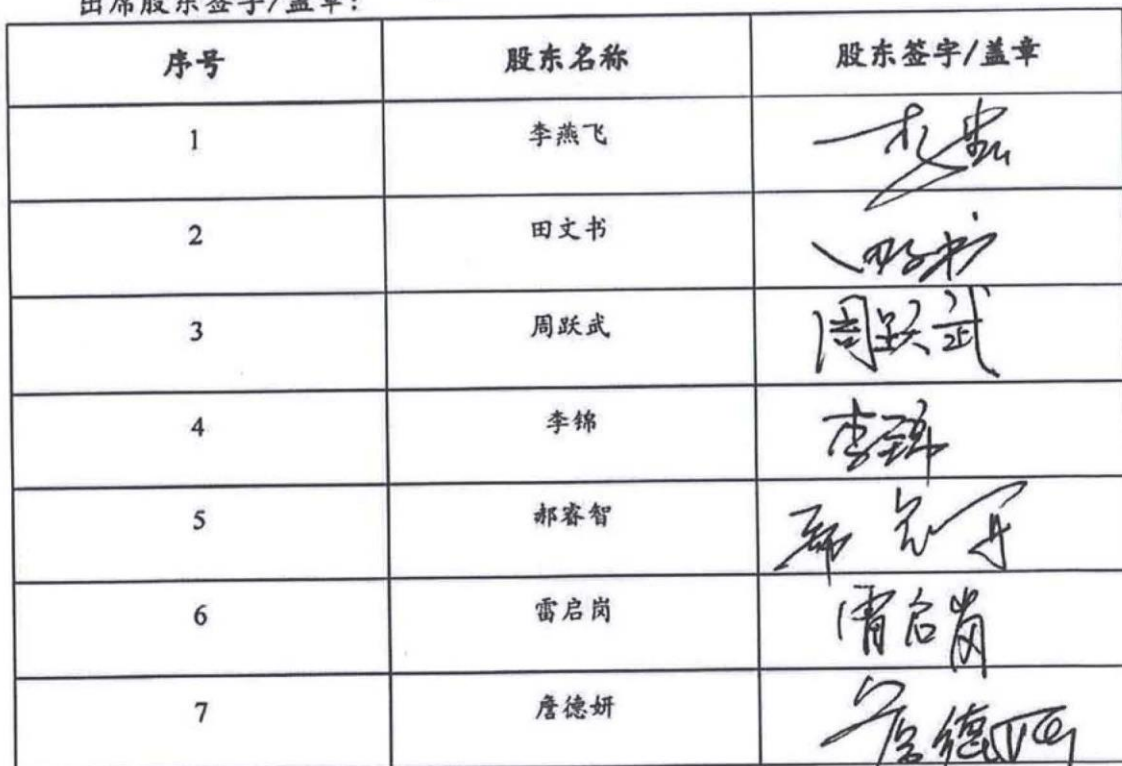 出席股东签字/盖章:
序号 股东名称 股东签字/盖章
1 李燕飞
2 田文书
3 周跃武 周跃武
4 李锦 李锦
5 郝睿智
6 雷启岗 雷启岗
7 詹德妍